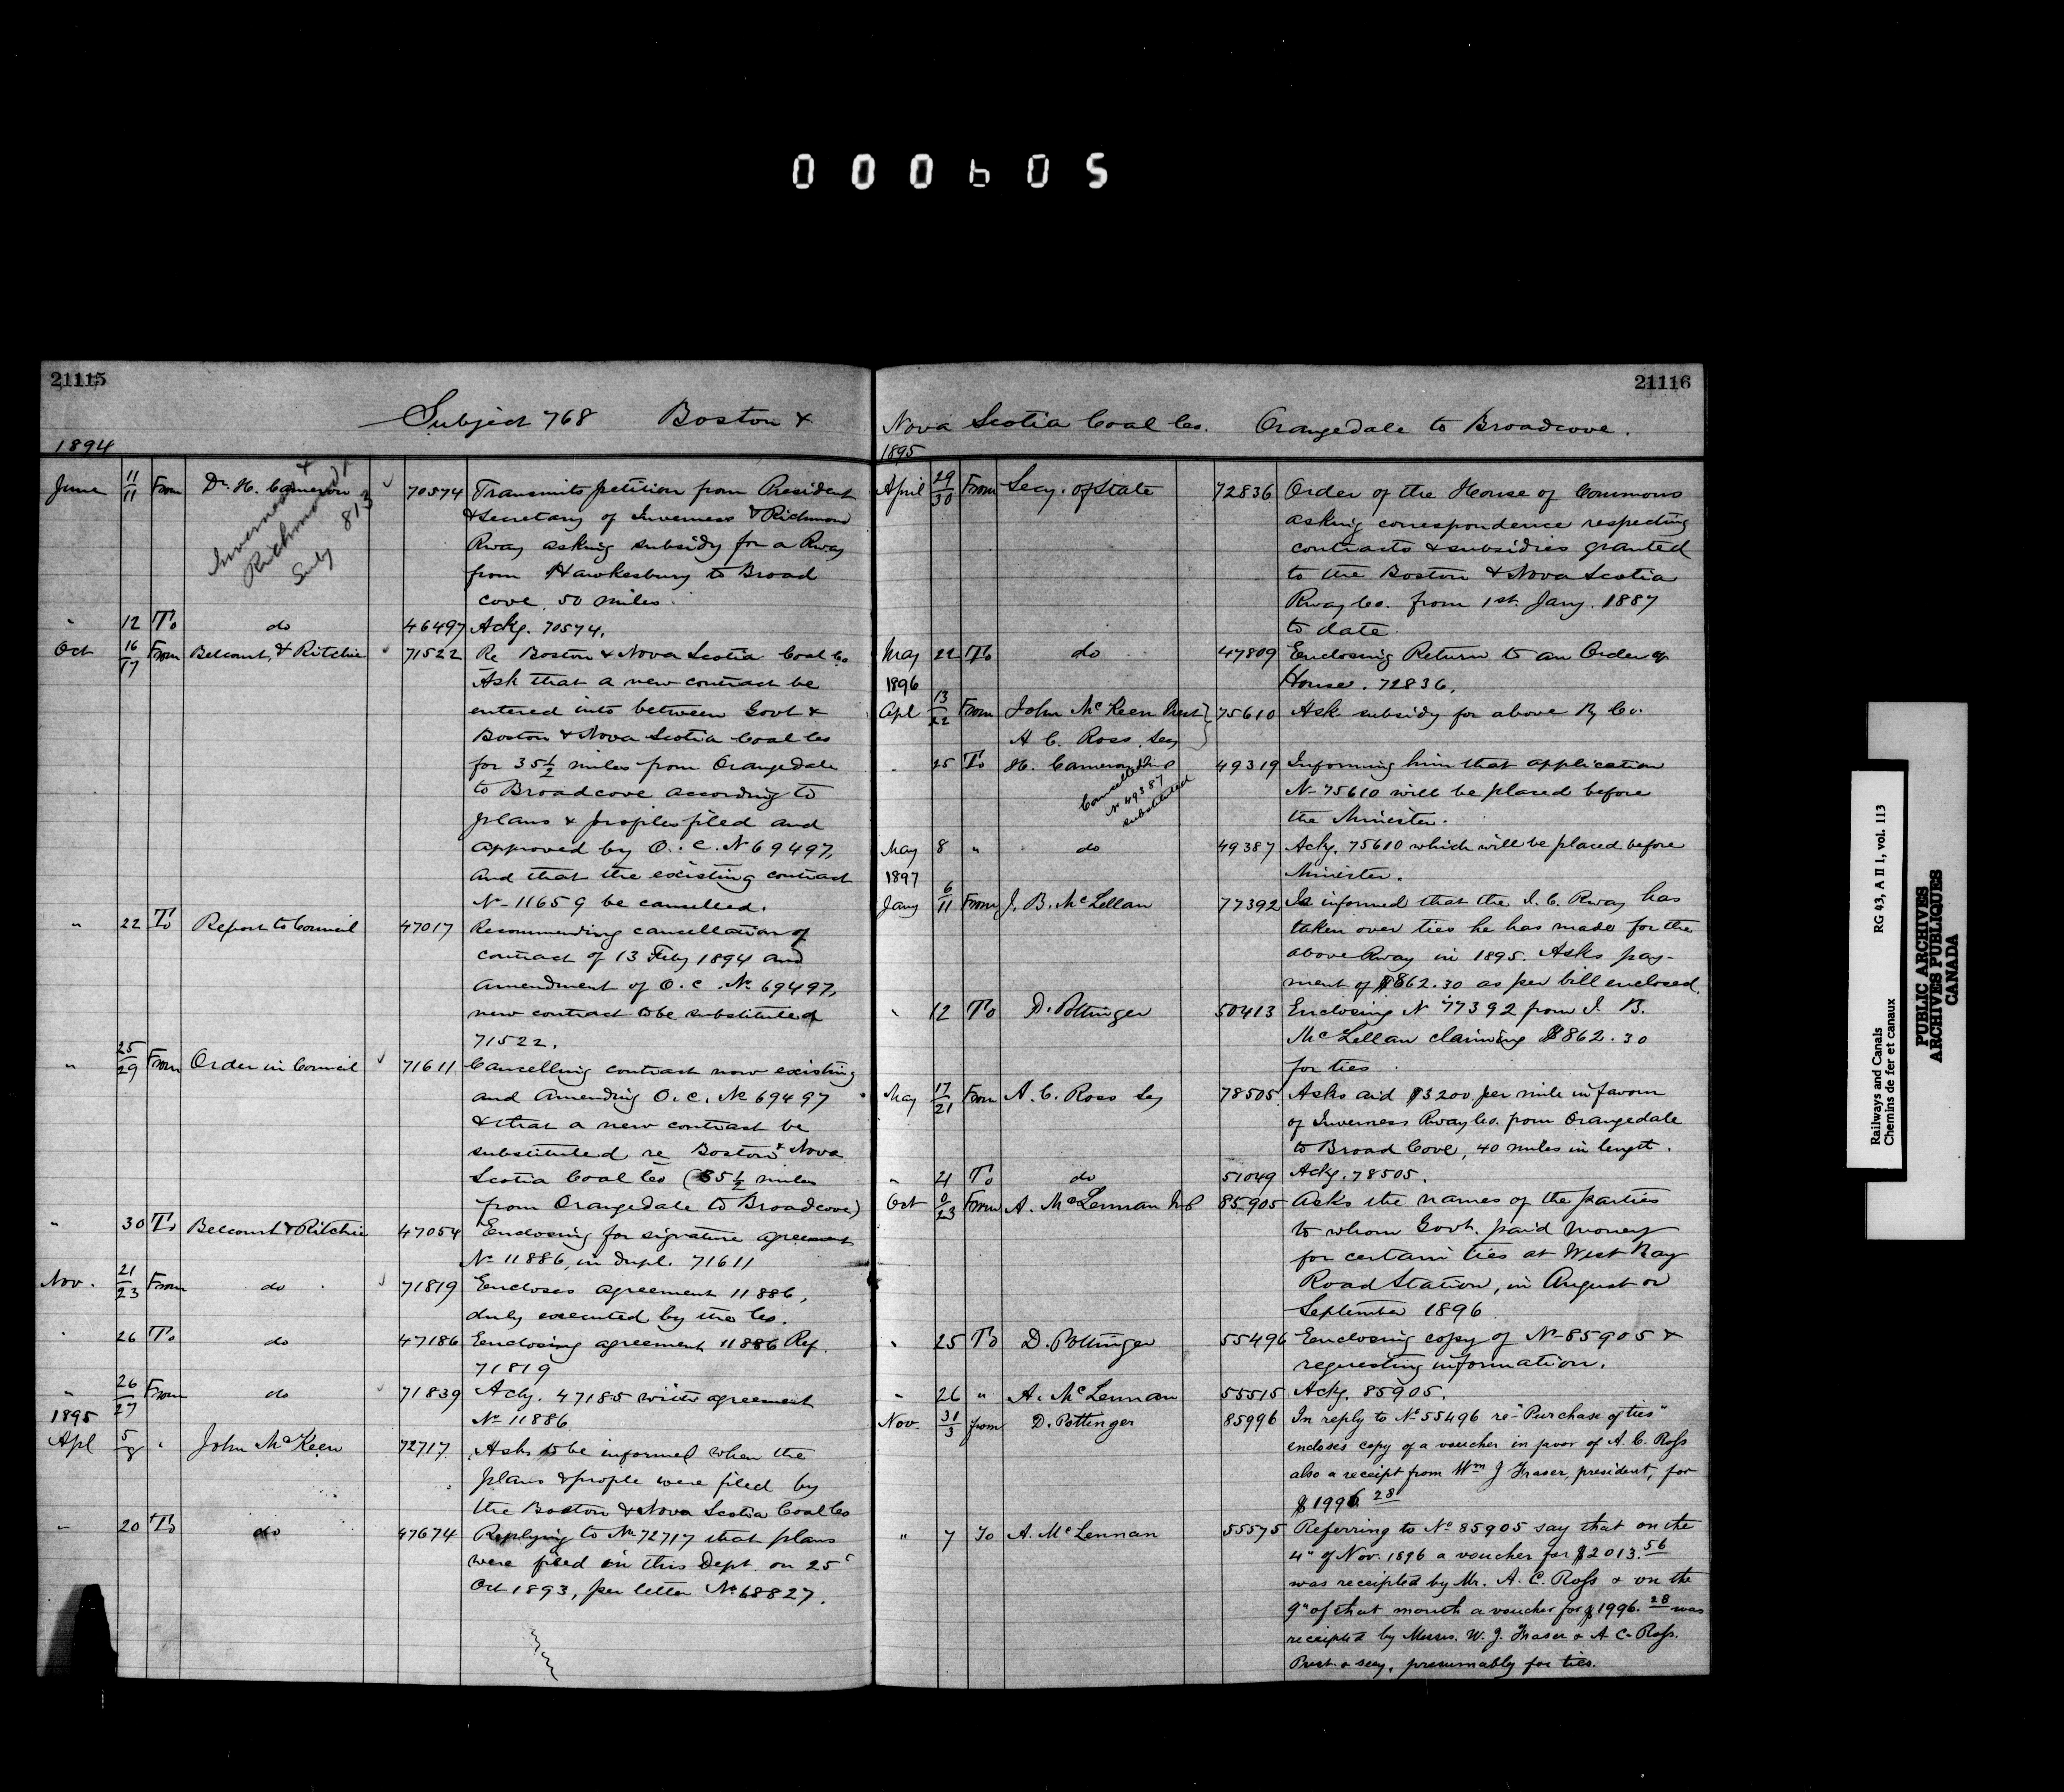 000605
21115
Subject 768 Boston &
1894
June 11/11 From Dr. H. Cameron 70574 Transmits petition from President
& Secretary of Inverness & Richmond
Rway asking subsidy for a Rway
from Hawkesbury to Broad
cove, 50 miles.
Inverness &
Richmond
Suby 813
" 12 To do 46497 Ackg. 70574.
Oct 16/17 From Belcourt & Ritchie 71522 Re Boston & Nova Scotia Coal Co
Ask that a new contract be
entered into between Govt &
Boston & Nova Scotia Coal Co
for 35 1/2 miles from Orangedale
to Broadcove according to
plans & profiles filed and
approved by O. C. No 69497,
and that the existing contract
No 11659 be cancelled.
" 22 To Report to Council 47017 Recommending cancellation of
contract of 13 Feby 1894 and
amendment of O. C. No 69497,
new contract to be substituted
71522.
" 25/29 From Order in Council 71611 Cancelling contract now existing
and amending O. C. No 69497
& that a new contract be
substituted re Boston & Nova
Scotia Coal Co (35 1/2 miles
from Orangedale to Broadcove)
" 30 To Belcourt & Ritchie 47054 Enclosing for signature agreement
No 11886, in dupl. 71611
Nov. 21/23 From do 71819 Encloses agreement 11886,
duly executed by the Co.
" 26 To do 47186 Enclosing agreement 11886 Ref.
71819
" 26/27 From do 71839 Ackg. 47185 with agreement
No 11886
1895
Apl 5/8 " John McKeen 72717 Asks to be informed when the
plans & profile were filed by
the Boston & Nova Scotia Coal Co
" 20 To do 47674 Replying to No 72717 that plans
were filed in this Dept. on 25
Oct 1893, per letter No 68827.
21116
Nova Scotia Coal Co. Orangedale to Broadcove.
1895
April 29/30 From Secy. of State 72836 Order of the House of Commons
asking correspondence respecting
contracts & subsidies granted
to the Boston & Nova Scotia
Rway Co. from 1st Jany. 1887
to date.
May 22 To do 47809 Enclosing Return to an Order of
House. 72836.
1896
Apl 13/22 From John McKeen Prest 75610 Ask subsidy for above Ry Co.
A C. Ross Secy
" 25 To H. Cameron 49319 Informing him that application
Cancelled
No 49387
substituted
No 75610 will be placed before
the Minister.
May 8 " do 49387 Ackg. 75610 which will be placed before
Minister.
1897
Jany 6/11 From J. B. McLellan 77392 Is informed that the I. C. Rway has
taken over ties he has made for the
above Rway in 1895. Asks pay-
ment of $862.30 as per bill enclosed.
" 12 To D. Pottinger 50413 Enclosing No 77392 from J. B.
McLellan claiming $862.30
for ties.
May 17/21 From A. C. Ross Secy 78505 Asks aid $3200 per mile in favour
of Inverness Rway Co. from Orangedale
to Broad Cove, 40 miles in length.
" 21 To do 51049 Ackg. 78505.
Oct 23 From A. McLennan M P 85905 Asks the names of the parties
to whom Govt. paid money
for certain ties at West Bay
Road Station, in August or
September 1896
" 25 To D. Pottinger 55496 Enclosing copy of No 85905 &
requesting information.
" 26 " A. McLennan 55515 Ackg. 85905.
Nov. 31/3 from D. Pottinger 85996 In reply to No 55496 re "Purchase of ties"
encloses copy of a voucher in favor of A. C. Ross
also a receipt from Wm J Fraser, president, for
$1996.28
" 7 To A. McLennan 55575 Referring to No 85905 say that on the
4" of Nov. 1896 a voucher for $2013.56
was receipted by Mr. A. C. Ross & on the
9" of that month a voucher for $1996.28 was
receipted by Messrs. W. J. Fraser & A C. Ross.
Prest. & secy, presumably for ties.
Railways and Canals RG 43, A II 1, vol. 113
Chemins de fer et canaux
PUBLIC ARCHIVES
ARCHIVES PUBLIQUES
CANADA